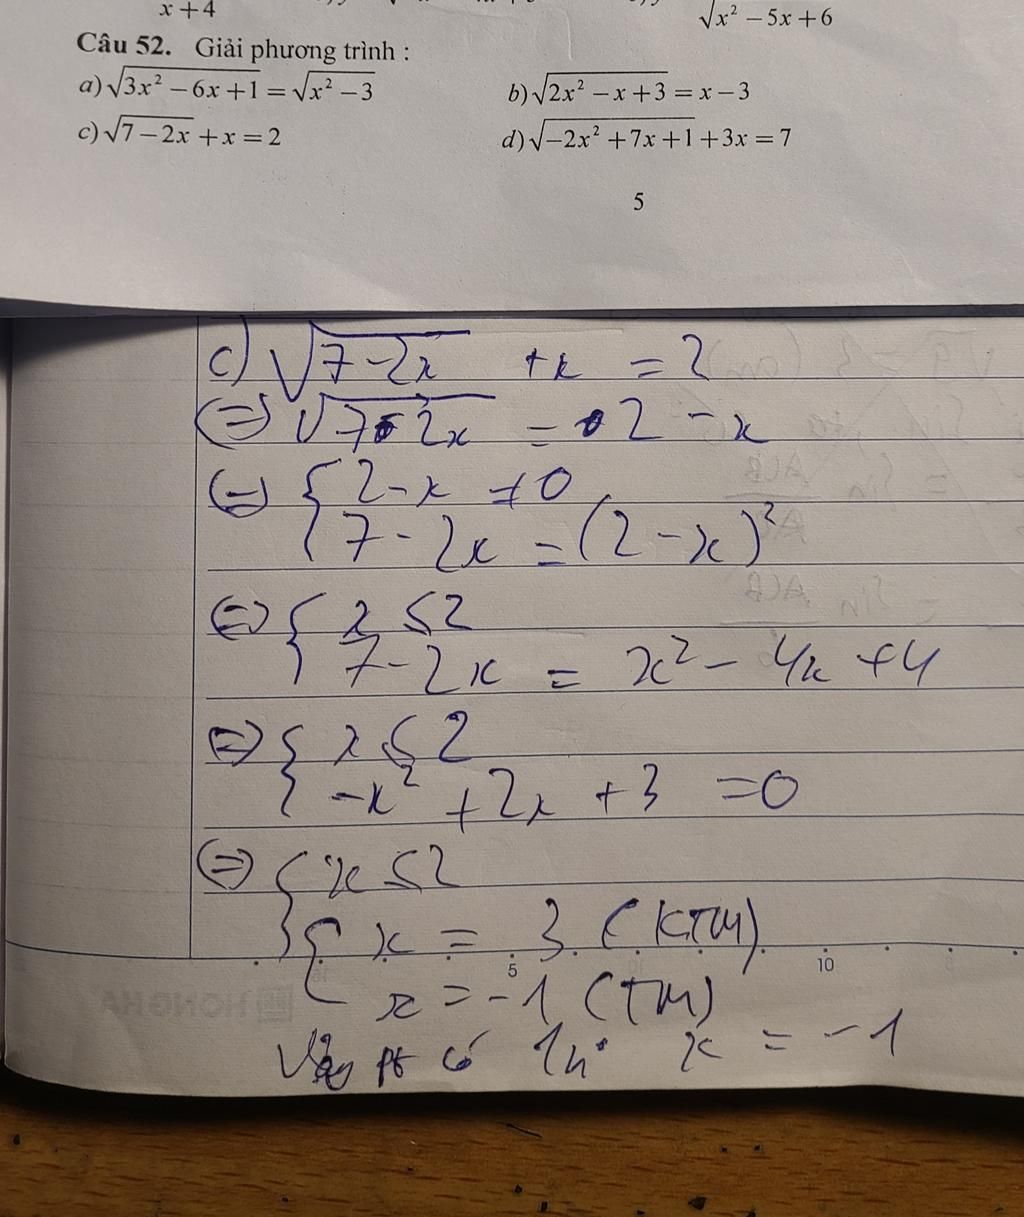 x + 4
√x² − 5x + 6
Câu 52. Giải phương trình :
a) √3x² − 6x + 1 = √x² − 3
b) √2x² − x + 3 = x − 3
c) √7 − 2x + x = 2
d) √−2x² + 7x + 1 + 3x = 7
5
c) √7 − 2x + x = 2
(=) √7 - 2x = 2 − x
(=) { 2 − x ≠ 0
7 − 2x = (2 − x)²
(=) { x ≤ 2
7 − 2x = x² − 4x + 4
(=) { x ≤ 2
−x² + 2x + 3 = 0
(=) { x ≤ 2
[ x = 3 (KTM)
x = −1 (TM)
5 10
Vậy pt có 1n° x = −1